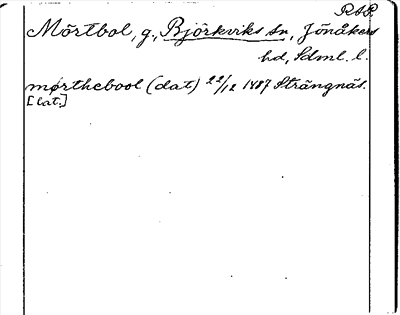 RAP.
Mörtbol, g, Björkviks sn, Jönåkers
hd, Sdml. l.
mørthebool (dat) 22/12 1487 Strängnäs.
[lat.]